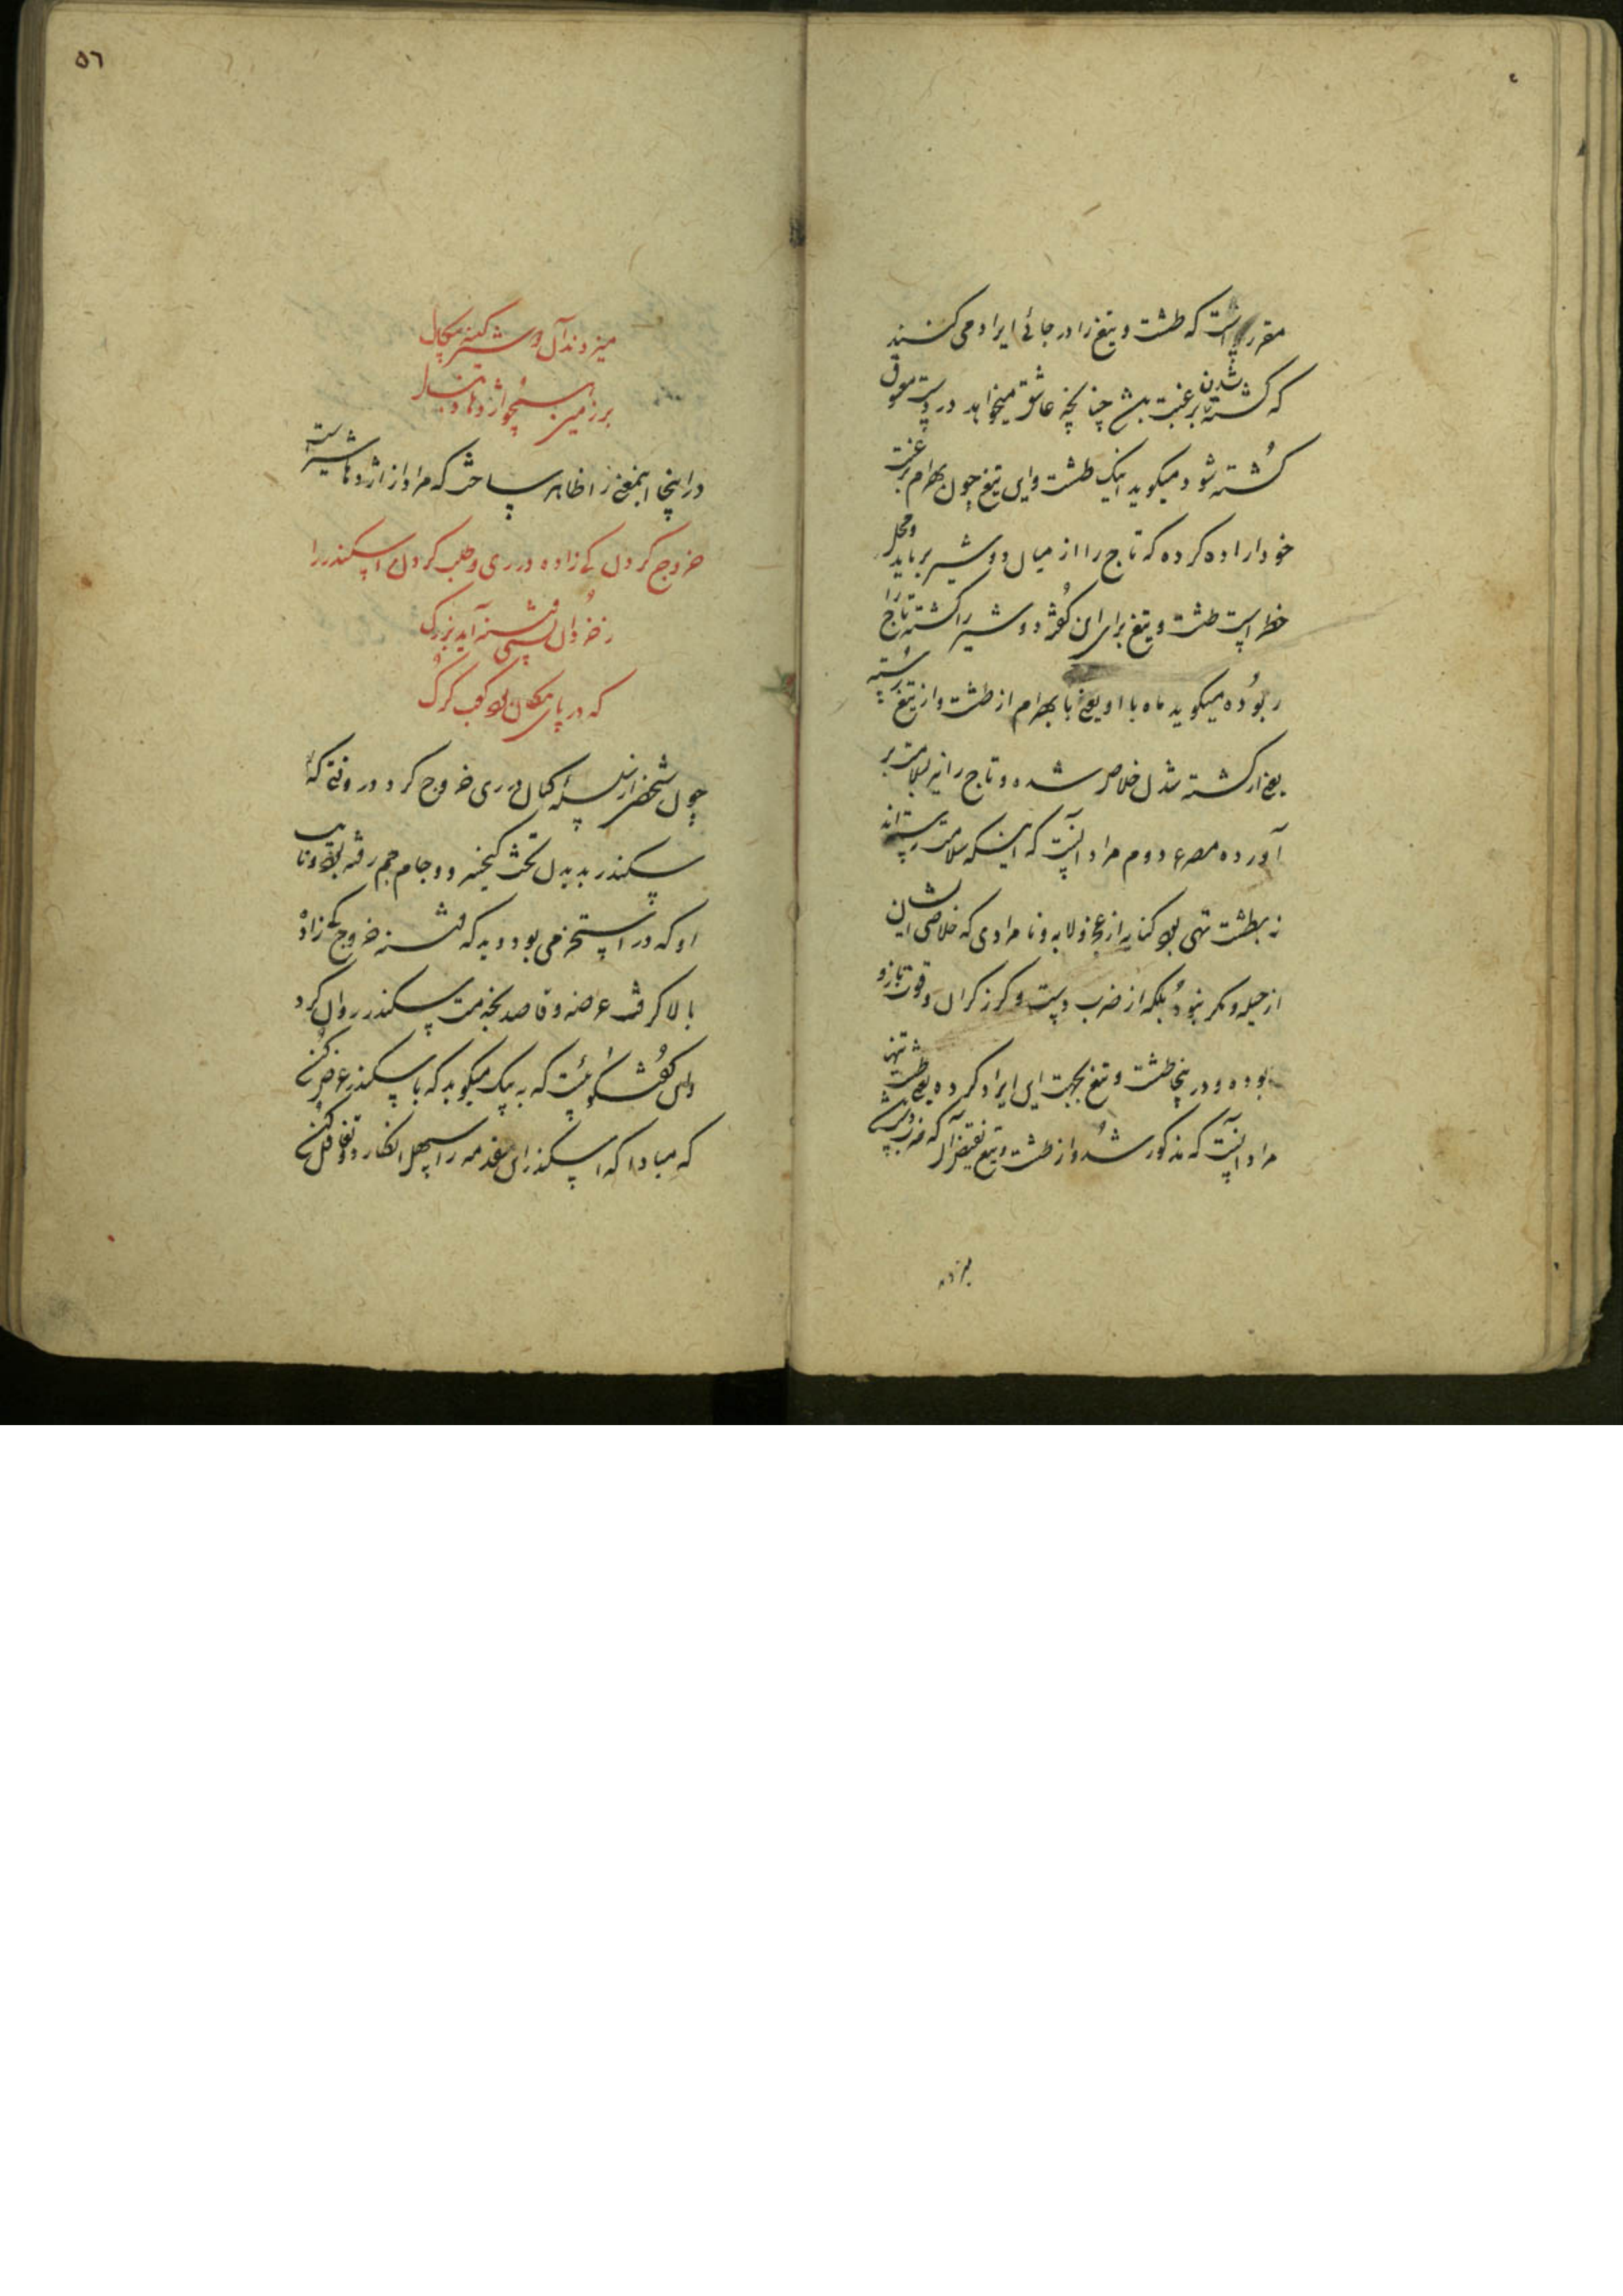 مقرر است که طشت و تیغ را در جائی ایراد می کنند
که کشته شدن برغبت باشد چنانچه عاشق میخواهد در دست معشوق
کُشته شود میکوید اینک طشت و این تیغ چون بهرام برغبت
خود اراده کرده که تاج را از میان دو شیر برباید و محل
خطر است طشت و تیغ برای این کفته دو شیر را کشته تاج را
ربُوده میکوید ماه با او یعنی با بهرام از طشت و از تیغ رسته
یعنی از کشته شدن خلاص شده و تاج را نیز بسلامت بر
آورده مصرع دوم مراد اینست که اینکه سلامت رسته‌اند
نه بطشت تهی بود کنایه از عجز و لابه و نامرادی که خلاصی ایشان
از حیله و مکر نبود بلکه از ضرب دست و کرز کران و قوت بازو
بوده و در اینجا طشت و تیغ بجهت این ایراد کرده یعنی طشت تهی
مراد اینست که مذکور شد و از طشت و تیغ
میزدند
۵٦
میزدند آن دو شیر کینه سکال
بر زمین همچو اژدها دنبال
در اینجا اینمعنی را ظاهر ساخته که مراد از اژدها شیر است
خروج کردن کی زاده در ری و طلب کردن اسکندر را
ز خردان بسی فتنه آید بزرک
که در پای پیکان بود کعب کرک
چون شخصی از نسل کیان در ری خروج کرد در وقتی که
سکندر بدیدن تخت کیخسرو و جام جم رفته بود و نایب
او که در استخر می بود دید که فتنه خروج کی زاده
بالا کرفت عرضه و قاصد بخدمت سکندر روان کرد
و این کفته که به پیک میکوید که با سکندر عرض کنی
که مبادا که اسکندر این مقدمه را سهل انکارد و تغافل کند